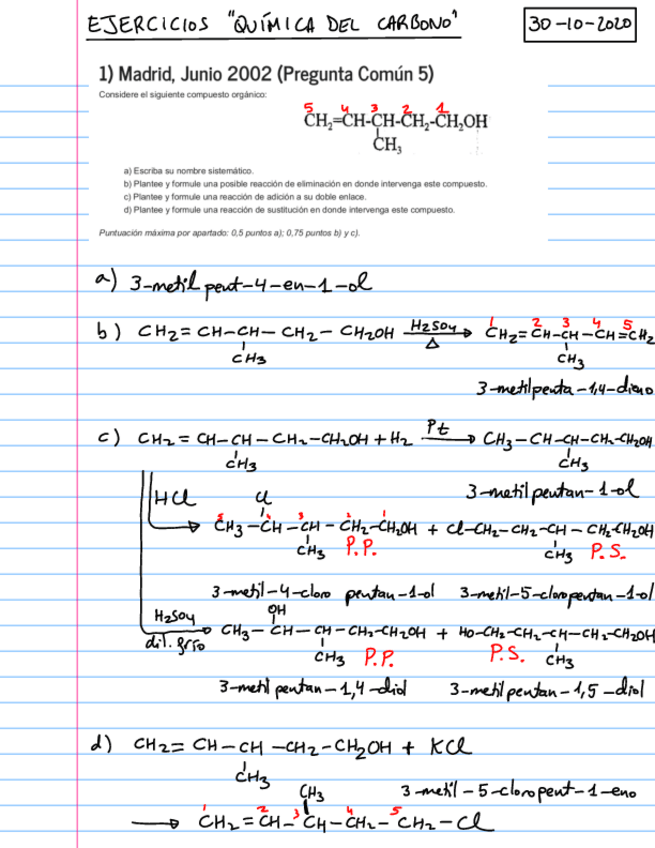 EJERCICIOS "QUÍMICA DEL CARBONO"
30-10-2020
1) Madrid, Junio 2002 (Pregunta Común 5)
Considere el siguiente compuesto orgánico:
5 4 3 2 1
CH₂=CH-CH-CH₂-CH₂OH
CH₃
a) Escriba su nombre sistemático.
b) Plantee y formule una posible reacción de eliminación en donde intervenga este compuesto.
c) Plantee y formule una reacción de adición a su doble enlace.
d) Plantee y formule una reacción de sustitución en donde intervenga este compuesto.
Puntuación máxima por apartado: 0,5 puntos a); 0,75 puntos b) y c).
a) 3-metil pent-4-en-1-ol
1 2 3 4 5
b) CH2=CH-CH-CH2-CH2OH H2SO4 Δ → CH2=CH-CH-CH=CH2
CH3 CH3
3-metilpenta-1,4-dieno
c) CH2=CH-CH-CH2-CH2OH + H2 Pt → CH3-CH-CH-CH2-CH2OH
CH3 CH3
3-metil pentan-1-ol
HCl Cl
→ CH3-CH-CH-CH2-CH2OH + Cl-CH2-CH2-CH-CH2-CH2OH
CH3 P.P. CH3 P.S.
3-metil-4-cloro pentan-1-ol 3-metil-5-cloropentan-1-ol
OH
H2SO4 dil. frío → CH3-CH-CH-CH2-CH2OH + HO-CH2-CH2-CH-CH2-CH2OH
CH3 P.P. P.S. CH3
3-metil pentan-1,4-diol 3-metil pentan-1,5-diol
d) CH2=CH-CH-CH2-CH2OH + KCl
CH3
CH3 3-metil-5-cloropent-1-eno
1 2 3 4 5
→ CH2=CH-CH-CH2-CH2-Cl